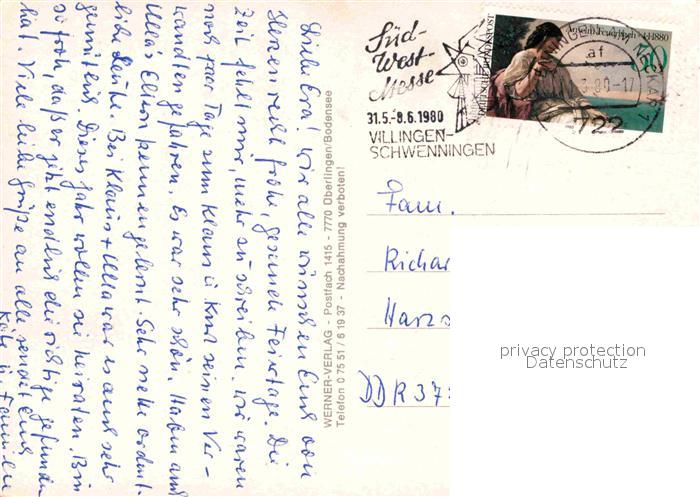 Liebe Eva! Wir alle wünschen Euch von
Herzen recht frohe, gesunde Feiertage. Die
Zeit fehlt mir, mehr zu schreiben. Wir waren
noch paar Tage zum Klaus u. Kurt seinen Ver-
wandten gefahren. Es war sehr schön. Haben auch
Ulla's Eltern kennen gelernt. Sehr nette ordent-
liche Leute. Bei Klaus + Ulla war es auch sehr
gemütlich. Dieses Jahr wollen sie heiraten. Bin
so froh, daß er jetzt endlich die richtige gefunden
hat. Viele liebe Grüße an alle, sendet Euch
Käte u. Familie
WERNER-VERLAG - Postfach 1415 - 7770 Überlingen/Bodensee
Telefon 0 75 51 / 6 19 37 - Nachahmung verboten!
Süd-
West-
Messe
31.5.-8.6.1980
VILLINGEN-
SCHWENNINGEN
Anselm Feuerbach
1880
af
722
Fam.
Richar
Harzs
DDR 37
privacy protection
Datenschutz